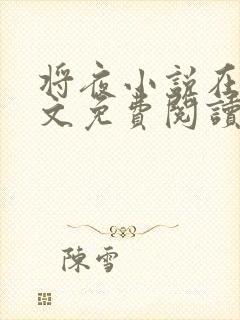 将夜小说在
文免費閱讀
陳雪